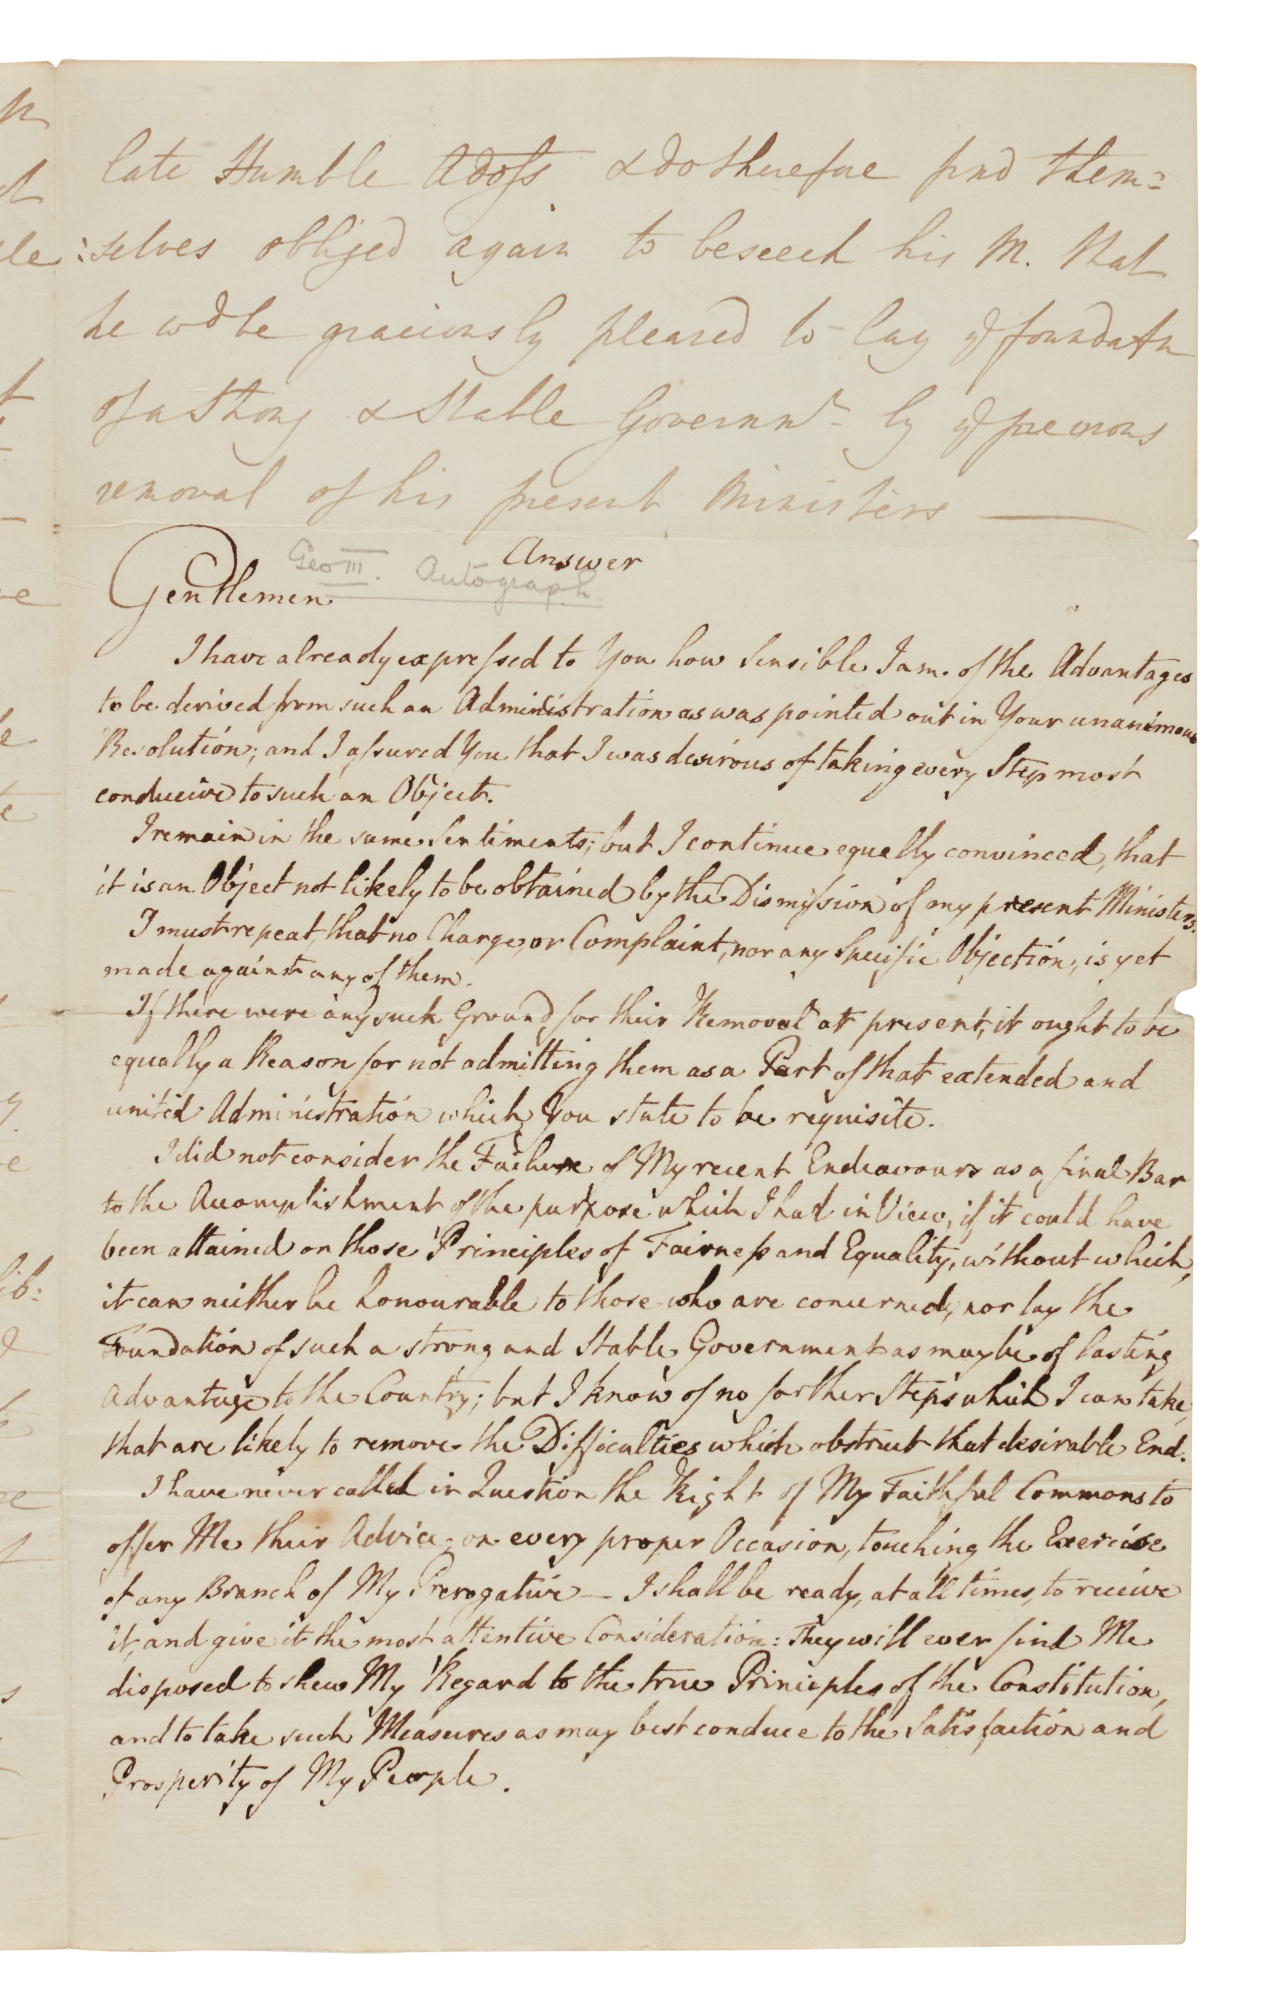 late Humble Addss & do therefore find them=
:selves obliged again to beseech his M. that
he wd be graciously pleased to lay ye foundatn
of a strong & stable Governmt by ye previous
removal of his present Ministers
Answer
Geo III. Autograph
Gentlemen
I have already expressed to You how sensible I am of the Advantages
to be derived from such an Administration as was pointed out in Your unanimous
Resolution; and I assured You that I was desirous of taking every Step most
conducive to such an Object.
I remain in the same Sentiments; but I continue equally convinced, that
it is an Object not likely to be obtained by the Dismission of my present Ministers.
I must repeat, that no Charge, or Complaint, nor any Specific Objection, is yet
made against any of them.
If there were any such Ground for their Removal at present, it ought to be
equally a Reason for not admitting them as a Part of that extended and
united Administration which You state to be requisite.
I did not consider the Failure of My recent Endeavours as a final Bar
to the Accomplishment of the purpose which I had in View, if it could have
been attained on those Principles of Fairness and Equality, without which,
it can neither be honourable to those who are concerned, nor lay the
Foundation of such a strong and Stable Government as may be of lasting
Advantage to the Country; but I know of no farther Steps which I can take,
that are likely to remove the Difficulties which obstruct that desirable End.
I have never called in Question the Right of My Faithful Commons to
offer Me their Advice, on every proper Occasion, touching the Exercise
of any Branch of My Prerogative — I shall be ready, at all times, to receive
it, and give it the most attentive Consideration: They will ever find Me
disposed to shew My Regard to the true Principles of the Constitution,
and to take such Measures as may best conduce to the Satisfaction and
Prosperity of My People.